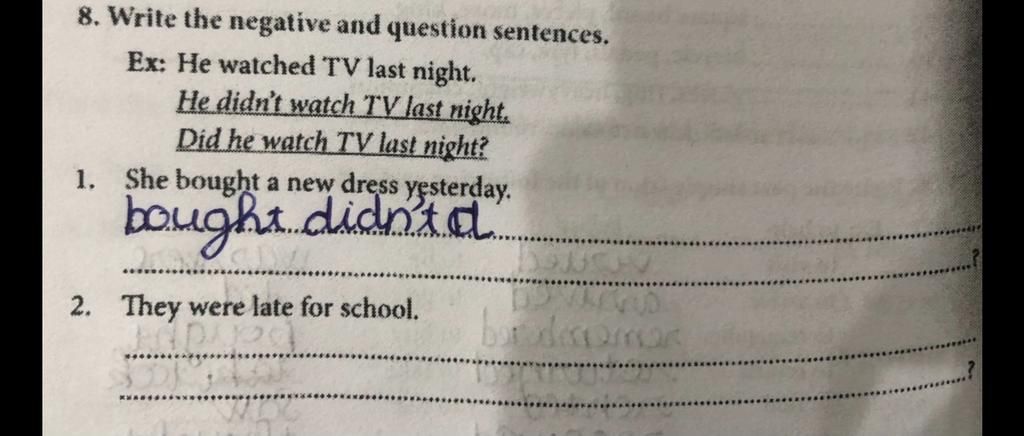 8. Write the negative and question sentences.
Ex: He watched TV last night.
He didn't watch TV last night.
Did he watch TV last night?
1. She bought a new dress yesterday.
bought didn't d
?
2. They were late for school.
?